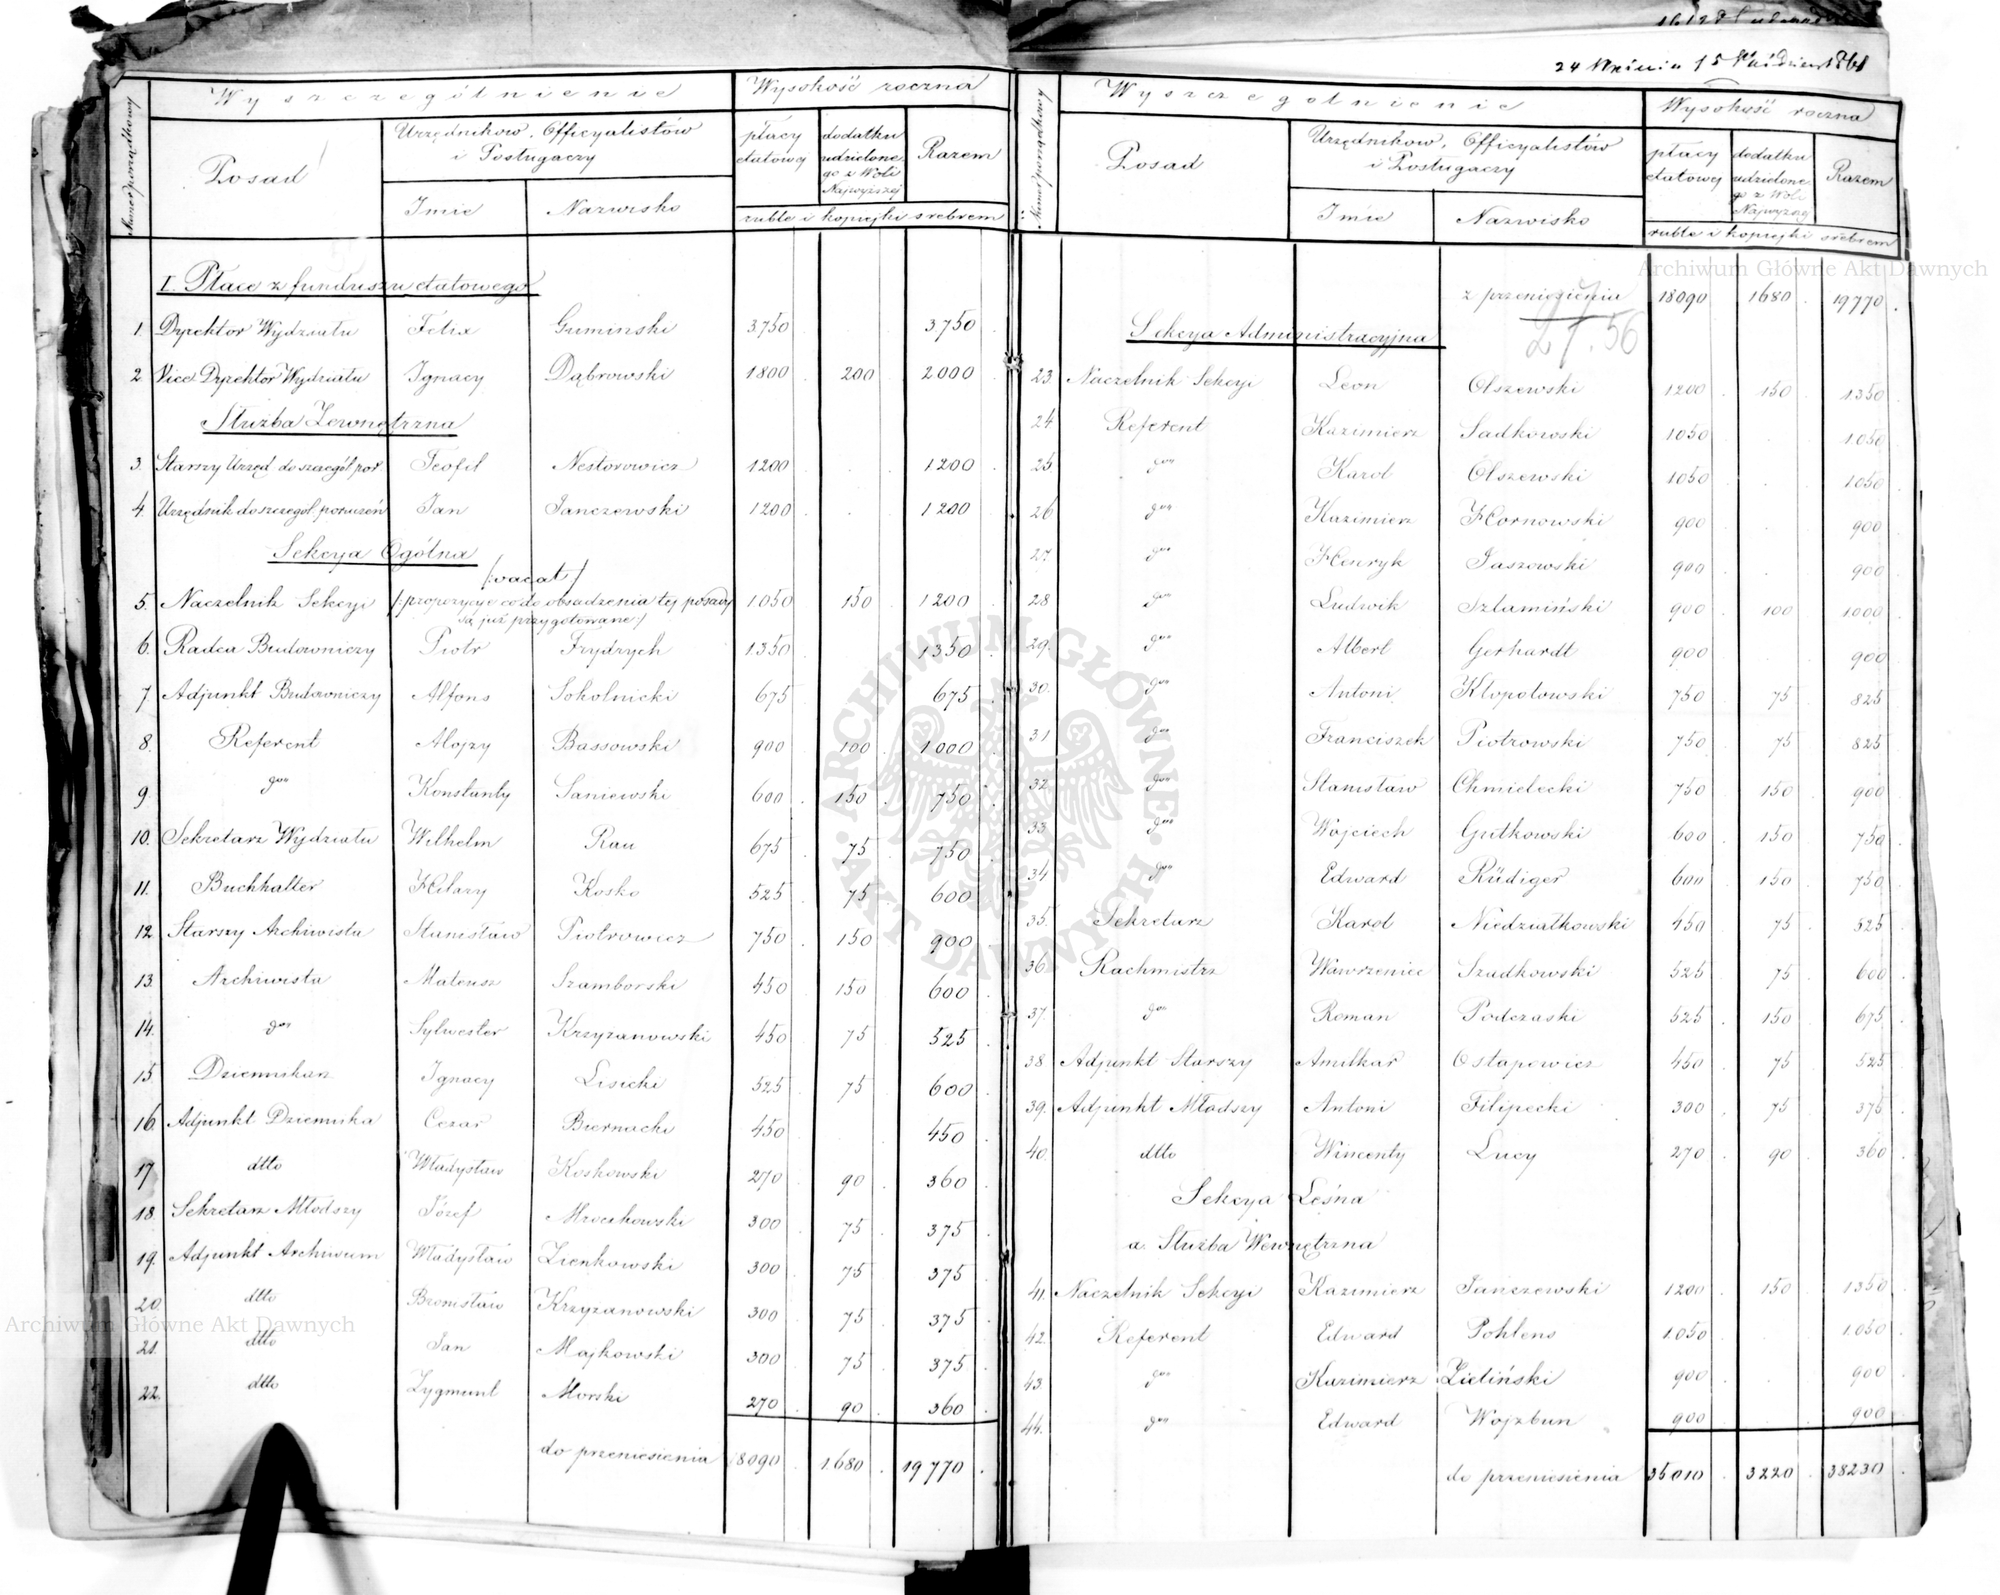 24 Września 15 Październ 1861
Wyszczególnienie Wysokość roczna
Numer porządkowy
Posad
Urzędników, Officyalistów
i Posługaczy
płacy etatowej
dodatku udzielonego z Woli Najwyższej
Razem
Imie Nazwisko
ruble i kopiejki srebrem
I. Płace z funduszu etatowego
1. Dyrektor Wydziału Felix Guminski 3750 3750
2. Vice Dyrektor Wydziału Ignacy Dąbrowski 1800 200 2000
Służba Zewnętrzna
3. Starszy Urzęd do szczegól por. Teofil Nestorowicz 1200 . 1200
4. Urzędnik do szczegól poruczeń Jan Janczewski 1200 . 1200
Sekcya Ogólna
/:vacat/
5. Naczelnik Sekcyi /:propozycye co do obsadzenia tej posady 1050 150 1200
są już przygotowane:/
6. Radca Budowniczy Piotr Frydrych 1350 1350
7 Adjunkt Budowniczy Alfons Sokolnicki 675 675
8. Referent Alojzy Bassowski 900 100 1000
9 dto Konstanty Saniewski 600 150 750
10. Sekretarz Wydziału Wilhelm Rau 675 75 750
11. Buchhalter Hilary Kosko 525 75 600
12. Starszy Archiwista Stanisław Piotrowicz 750 150 900
13. Archiwista Mateusz Szamborski 450 150 600
14. dto Sylwester Krzyżanowski 450 75 525
15. Dziennikarz Ignacy Lisicki 525 75 600
16. Adjunkt Dziennika Cezar Biernacki 450 450
17 dtto Władysław Koskowski 270 90 360
18. Sekretarz Młodszy Józef Mroczkowski 300 75 375
19. Adjunkt Archiwum Władysław Zienkowski 300 75 375
20. dtto Bronisław Krzyżanowski 300 75 375
21. dtto Jan Majkowski 300 75 375
22. dtto Zygmunt Morski 270 90 360
do przeniesienia 18090 1680 19770
Wyszczególnienie Wysokość roczna
Numer porządkowy
Posad
Urzędników, Officyalistów
i Posługaczy
płacy etatowej
dodatku udzielonego z Woli Najwyższej
Razem
Imie Nazwisko
ruble i kopiejki srebrem
z przeniesienia 18090 1680 19770
Sekcya Administracyjna
27.56
23. Naczelnik Sekcyi Leon Olszewski 1200 150 1350
24 Referent Kazimierz Sadkowski 1050 . 1050
25 dto Karol Olszewski 1050 1050
26 dto Kazimierz Hornowski 900 . 900
27. dto Henryk Jaszowski 900 . 900
28 dto Ludwik Szlamiński 900 100 1000
29. dto Albert Gerhardt 900 . 900
30. dto Antoni Kłopotowski 750 75 825
31 dto Franciszek Piotrowski 750 75 825
32 dto Stanisław Chmielecki 750 150 900
33 dto Wojciech Gutkowski 600 150 750
34 dto Edward Rüdiger 600 150 750
35. Sekretarz Karol Niedziałkowski 450 75 525
36. Rachmistrz Wawrzeniec Szadkowski 525 75 600
37. dto Roman Podczaski 525 150 675
38 Adjunkt Starszy Amilkar Ostapowicz 450 75 525
39. Adjunkt Młodszy Antoni Filipecki 300 75 375
40. dtto Wincenty Lucy 270 90 360
Sekcya Leśna
a. Służba Wewnętrzna
41. Naczelnik Sekcyi Kazimierz Janczewski 1200 150 1350
42. Referent Edward Pohlens 1050 . 1050
43. dto Kazimierz Zieliński 900 . 900
44. dto Edward Wojzbun 900 . 900
do przeniesienia 35010 3220 38230
Archiwum Główne Akt Dawnych
Archiwum Główne Akt Dawnych
ARCHIWUM GŁÓWNE AKT DAWNYCH